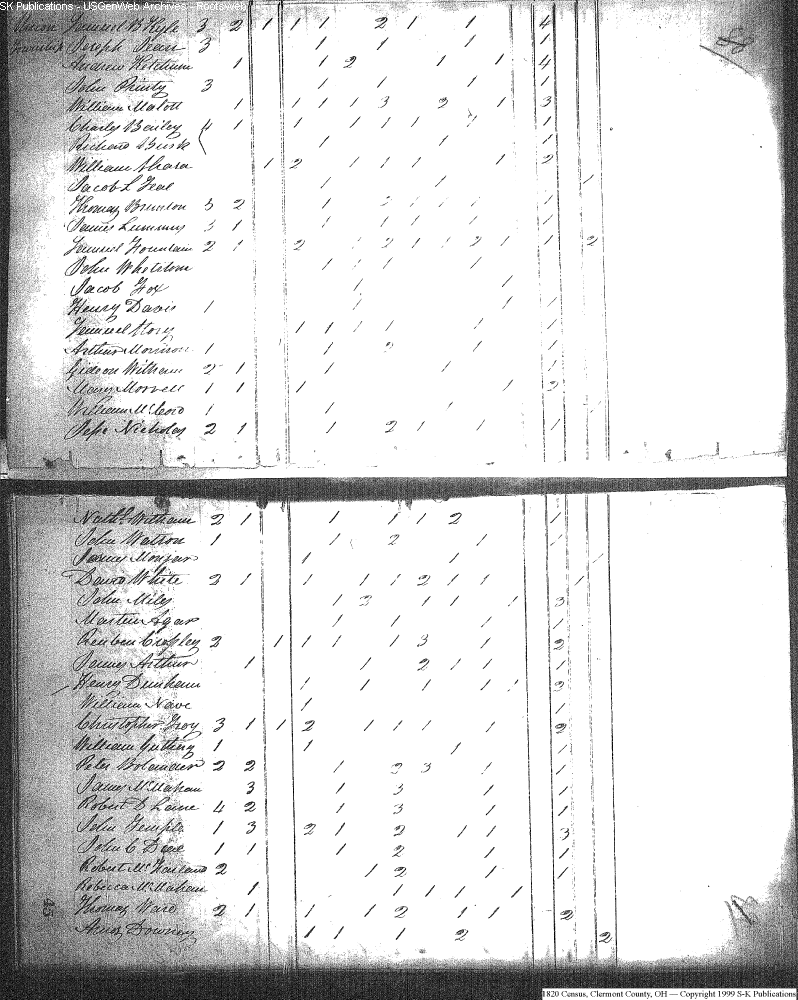 SK Publications - USGenWeb Archives - Rootsweb
Union Samuel B Kyle 3 2 1 1 1 2 1 1 4
Township Joseph Dean 3 1 1 1 1
Andrew Ketchum 1 1 2 1 1 4
John 3 1 1 1 1
William Malott 1 1 1 1 3 2 1 3
Charles Bailey 4 1 1 1 1 1 1
Richard 1 1
William 1 2 1 1 1 1 2
Jacob L Teal 1 1 1
Thomas Brunson 3 2 1 1 1 1 1
James Lummis 3 1 1 1 1 1 1
Samuel Fountain 2 1 2 1 2 1 1 2 1 1 2
John Whetston 1 1 1 1
Jacob Fox 1 1
Henry Davis 1 1 1 1
Samuel Story 1 1 1 1 1 1
Arthur Morrison 1 1 2 1 1
Gideon Witham 2 1 1 1 1
Mary 1 1 1 1 2
William McCord 1 1 1
Nicholas 2 1 1 2 1 1 1
Nathl. Witham 2 1 1 1 1 2 1
John Watson 1 1 2 1 1
James 1 1 1
David White 2 1 1 1 1 2 1 1 1
John Miles 1 3 1 1 1 3
Martin Agar 1 1 1 1
Reuben 2 1 1 1 1 1 3 1 2
James Arthur 1 1 2 1 1 1
Henry Dunham 1 1 1 1 1 2
William Nave 1 1
Christopher Troy 3 1 1 2 1 1 1 1 2
William 1 1 1 1
Peter Bolander 2 2 1 2 3 1 1
James McMahan 3 1 3 1 1
Robert D Lane 4 2 1 3 1 1
John Temple 1 3 2 1 2 1 1 3
John C Deal 1 1 1 2 1 1
Robert McFarland 2 1 2 1 1
Rebecca McMahan 1 1 1 1 1
Thomas Ward 2 1 1 1 2 1 1 2
Amos Downey 1 1 1 2 2
45
1820 Census, Clermont County, OH — Copyright 1999 S-K Publications